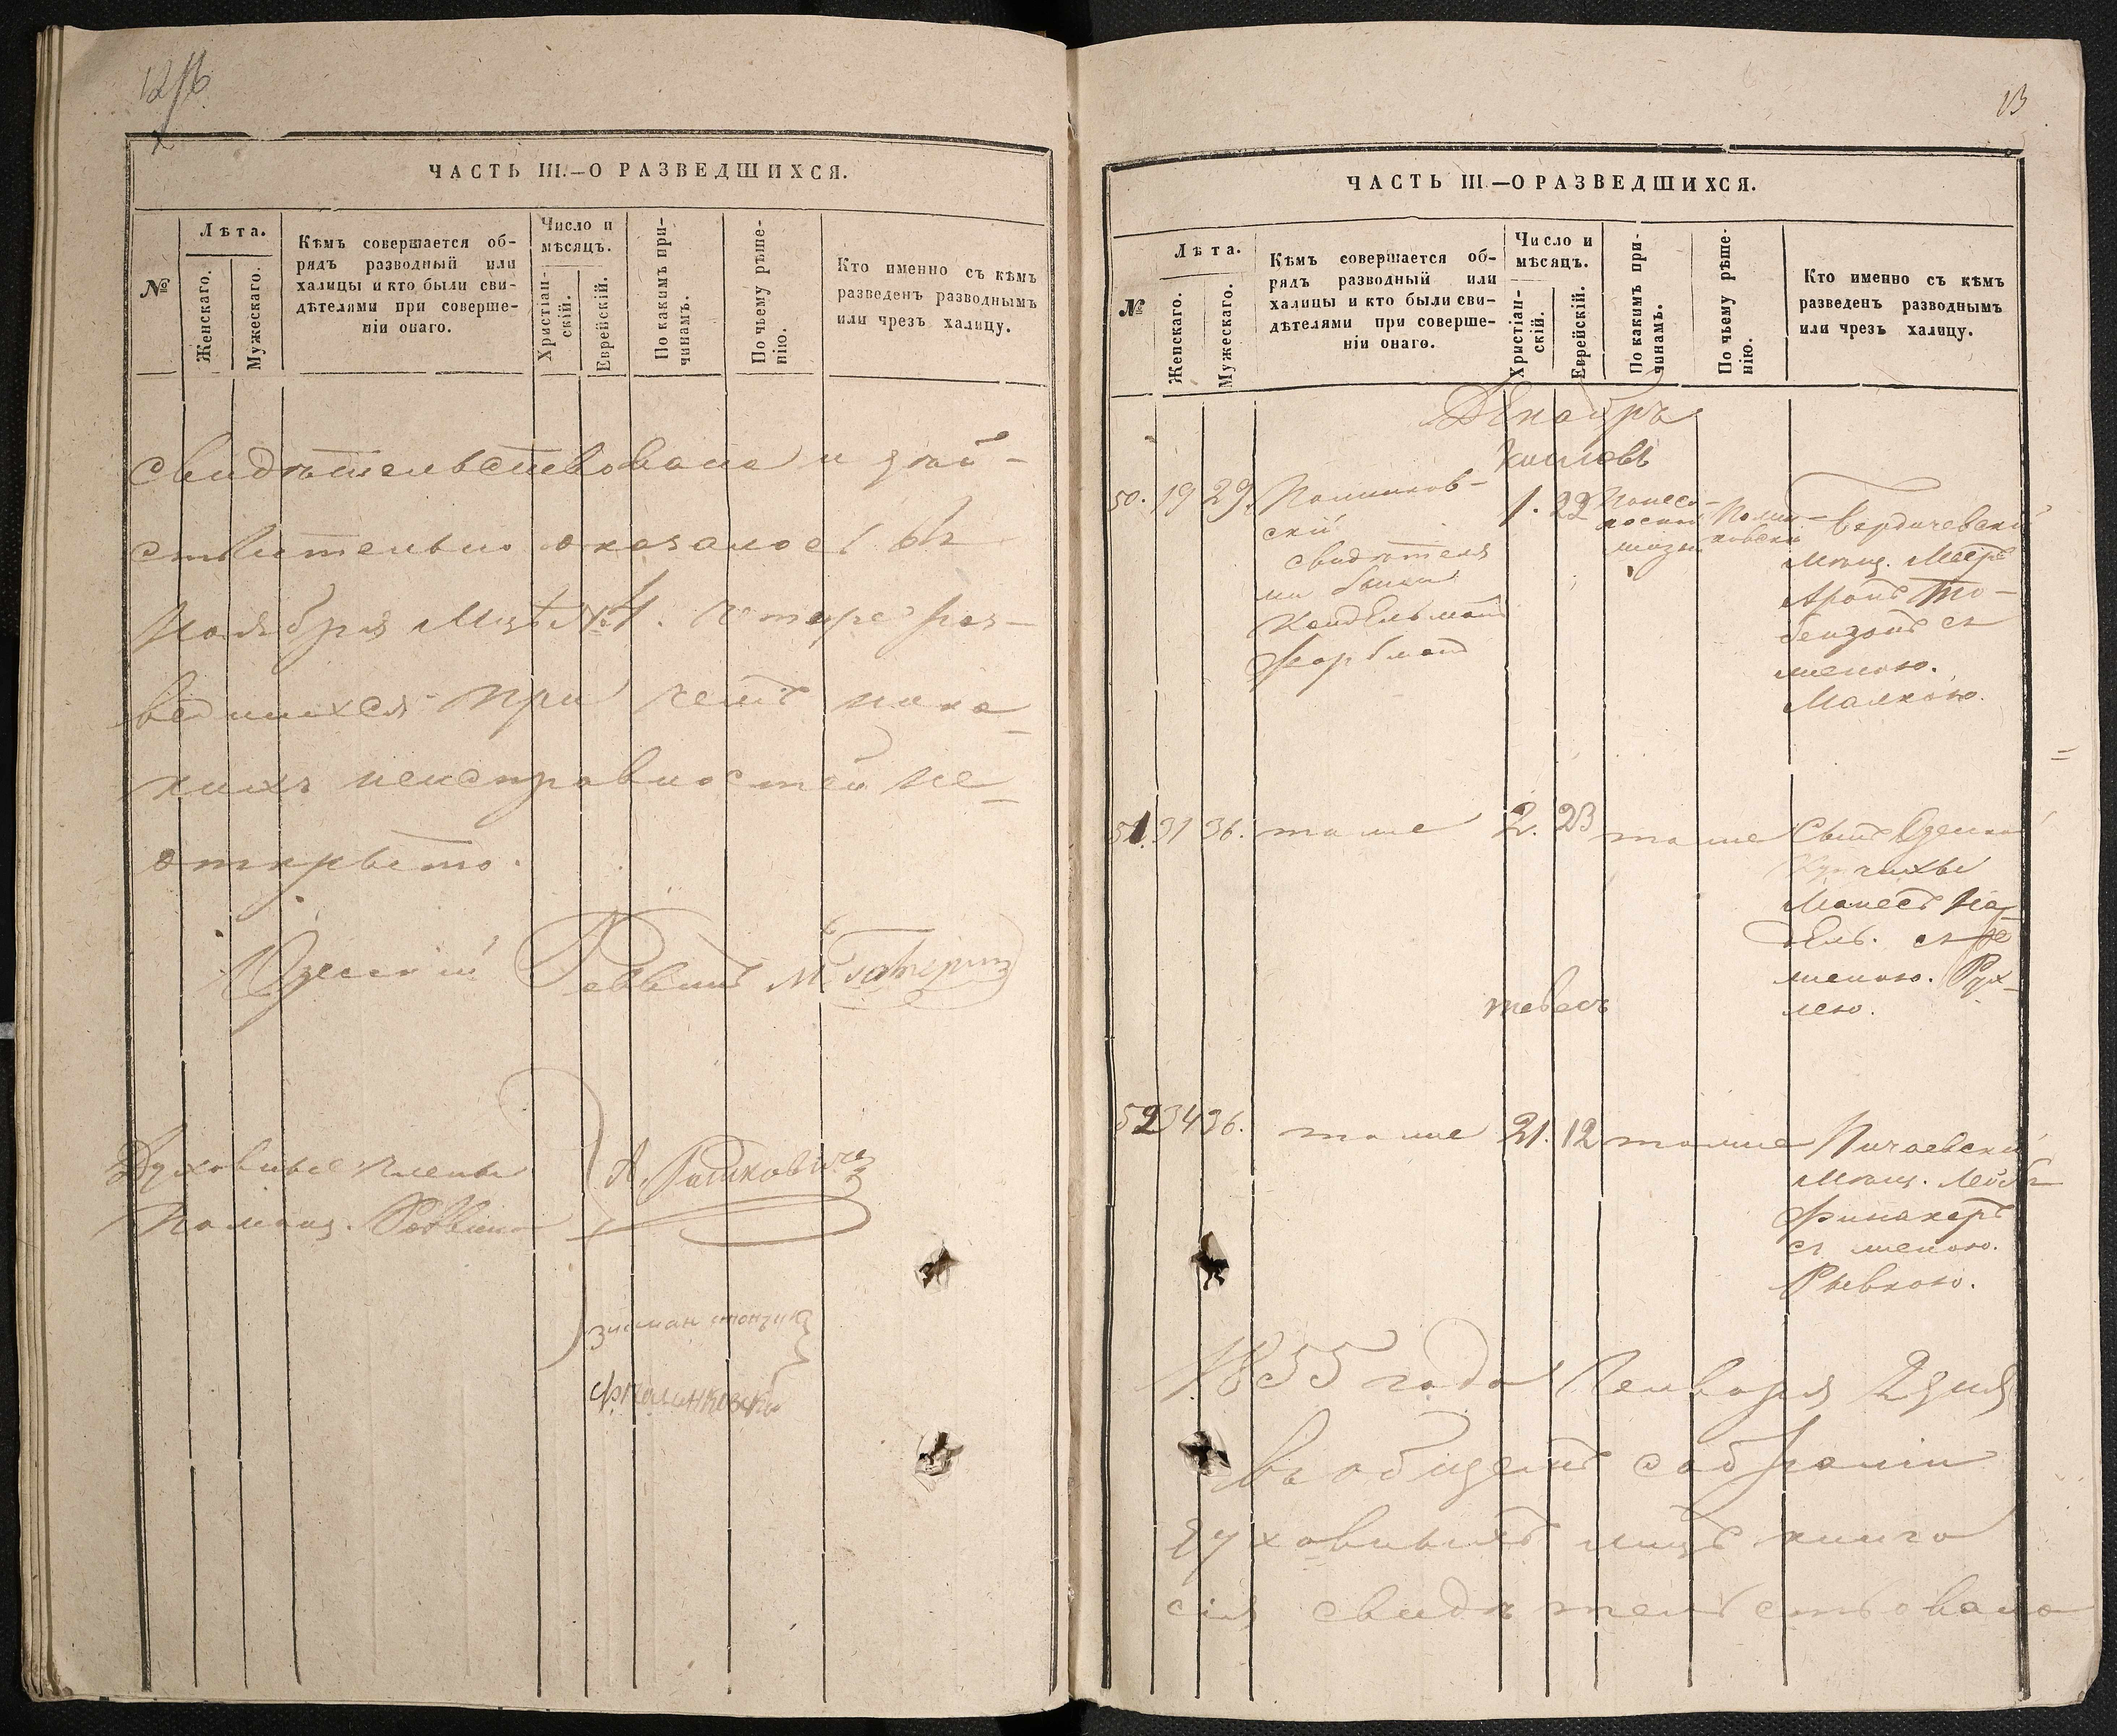 12/6
ЧАСТЬ III.—О РАЗВЕДШИХСЯ.
№
Лѣта.
Женскаго.
Мужескаго.
Кѣмъ совершается об-
рядъ разводный или
халицы и кто были сви-
дѣтелями при соверше-
ніи онаго.
Число и
мѣсяцъ.
Христіан-
скій.
Еврейскій.
По какимъ при-
чинамъ.
По чьему рѣше-
нію.
Кто именно съ кѣмъ
разведенъ разводнымъ
или чрезъ халицу.
свидѣтельствована и дѣй-
ствительно оказалось въ
Ноября Мцѣ № 4. четыре раз-
ведшихся при чемъ ника-
кихъ неисправностей не-
открыто.
Одесскій Раввинъ М.
Духовные члены
Помощ. Раввина
А. Рашковичъ
Зисман
13
ЧАСТЬ III—О РАЗВЕДШИХСЯ.
№
Лѣта.
Женскаго.
Мужескаго.
Кѣмъ совершается об-
рядъ разводный или
халицы и кто были сви-
дѣтелями при соверше-
ніи онаго.
Число и
мѣсяцъ.
Христіан-
скій.
Еврейскій.
По какимъ при-
чинамъ.
По чьему рѣше-
нію.
Кто именно съ кѣмъ
разведенъ разводнымъ
или чрезъ халицу.
Декабрь
Кислевъ
50. 19 29.
скій
свидѣтеля
ми были
1. 22
Бердичевскій
Мѣщ. Мееръ
Аронъ
съ
женою.
Малкою.
51. 31 36. тоже 2. 23 тоже
Сынъ Одесской
Купчихи
съ
женою. Рух-
лею.
тевесъ
52 34 36. тоже 21. 12 тоже
Мѣщ. Лейбъ
Финакеръ
съ женою.
Рывкою.
1855 года Генваря 2 дня
въ общемъ собраніи
духовныхъ лицъ книга
сія свидѣтельствована